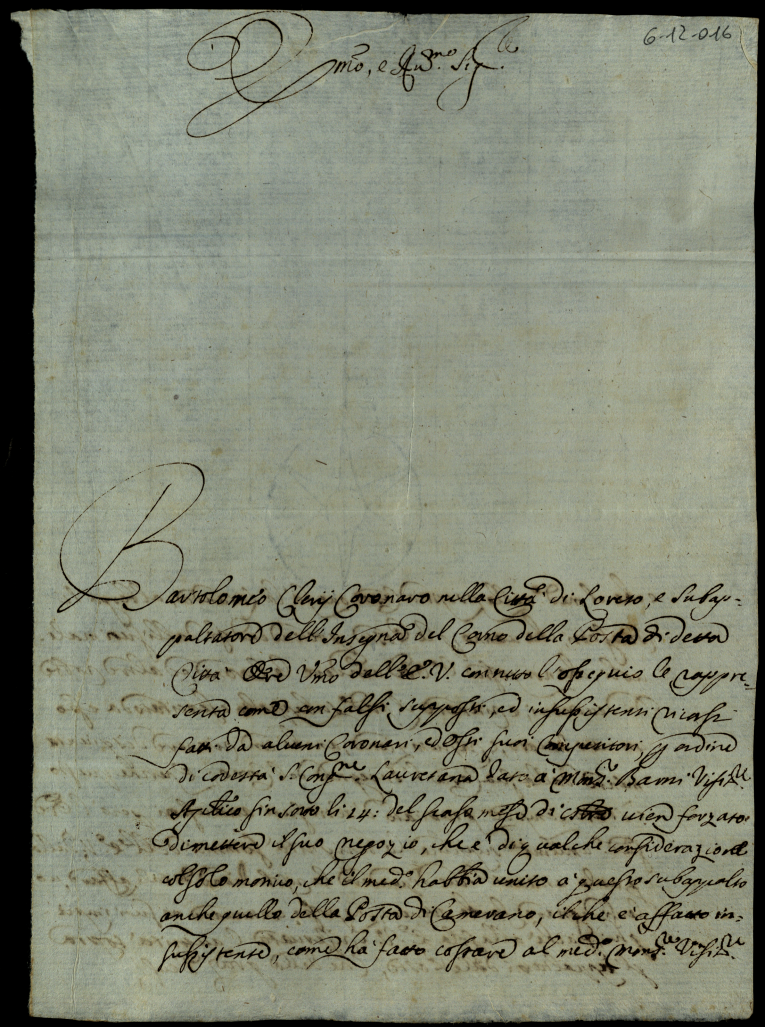 6-12-016
Jmo, e Rd.mo Sig.re
Bartolomeo Clerij Coronaro nella Città di Loreto, e subap-
paltatore dell'Insegna del Corno della Posta di detta
Città Ore Vmo dell'E. V. con tutto l'ossequio le rappre-
senta come con falsi supposti, ed insussistenti ricorsi
fatti da alcuni Coronari, ed Osti suoi Competitori, p ordine
di codesta S. Cong.ne Lauretana dato a Monsr. Visit.re
Apllico sin sotto li 14: del scaso mese di vien forzato
dimettere il suo negozio, che è di qualche considerazione
col solo motivo, che il med.o habbia unito a questo subappalto
anche quello della Posta di Camerano, il che è affatto in-
sussistente, come ha fatto costare al med.o Mons.re Visit.re